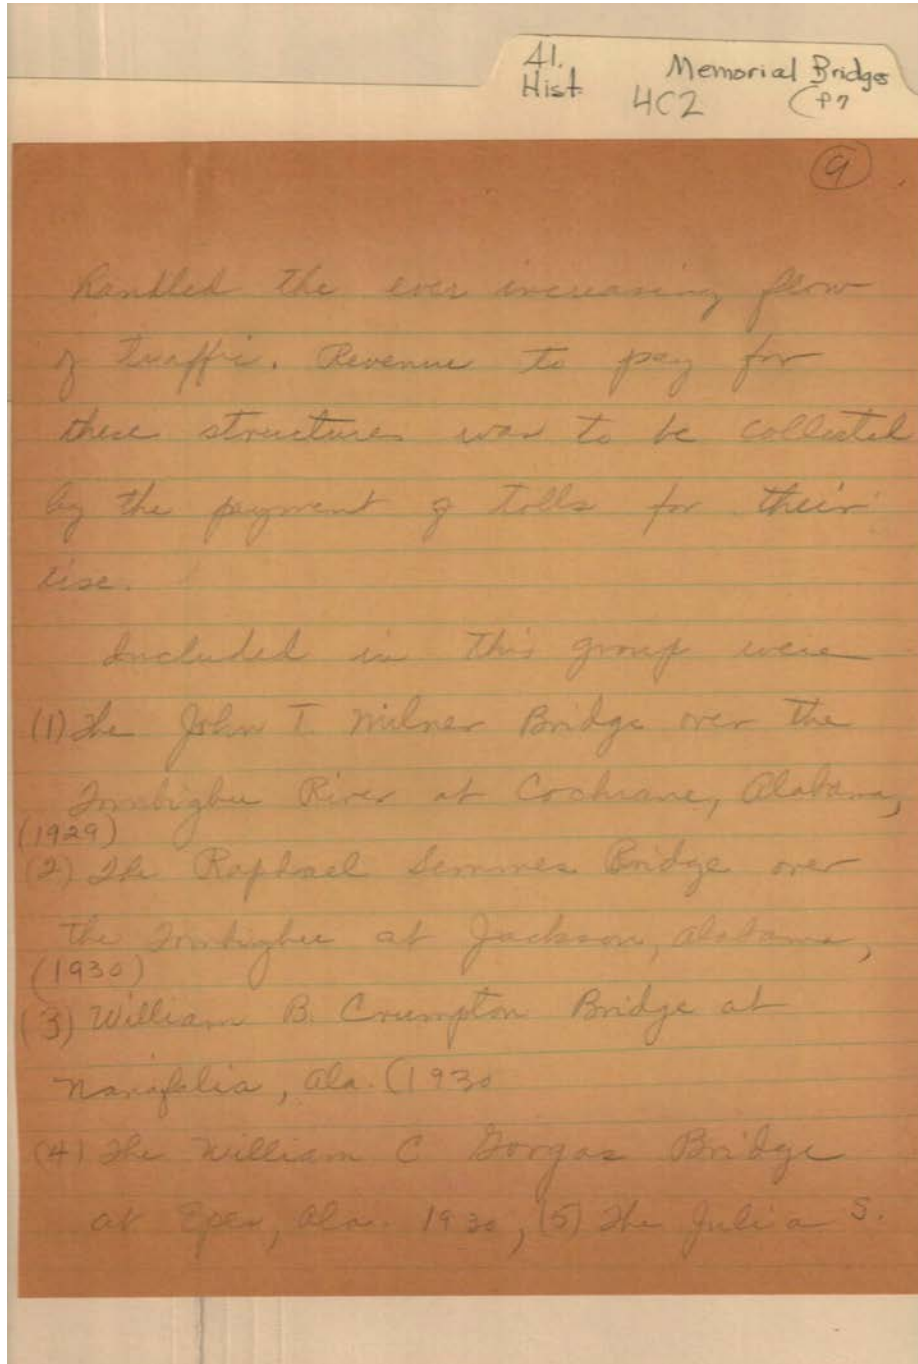 Al. Memorial Bridges
Hist 4C2 (P7
9
handled the ever increasing flow
of traffic. Revenue to pay for
these structures was to be collected
by the payment of tolls for their
use.
Included in this group were
(1) The John T. Milner Bridge over the
Tombigbee River at Cochrane, Alabama,
(1929)
(2) The Raphael Semmes Bridge over
the Tombigbee at Jackson, Alabama,
(1930)
(3) William B. Crumpton Bridge at
Nanafalia, Ala. (1930
(4) The William C Gorgas Bridge
at Epes, Ala. 1930, (5) The Julia S.